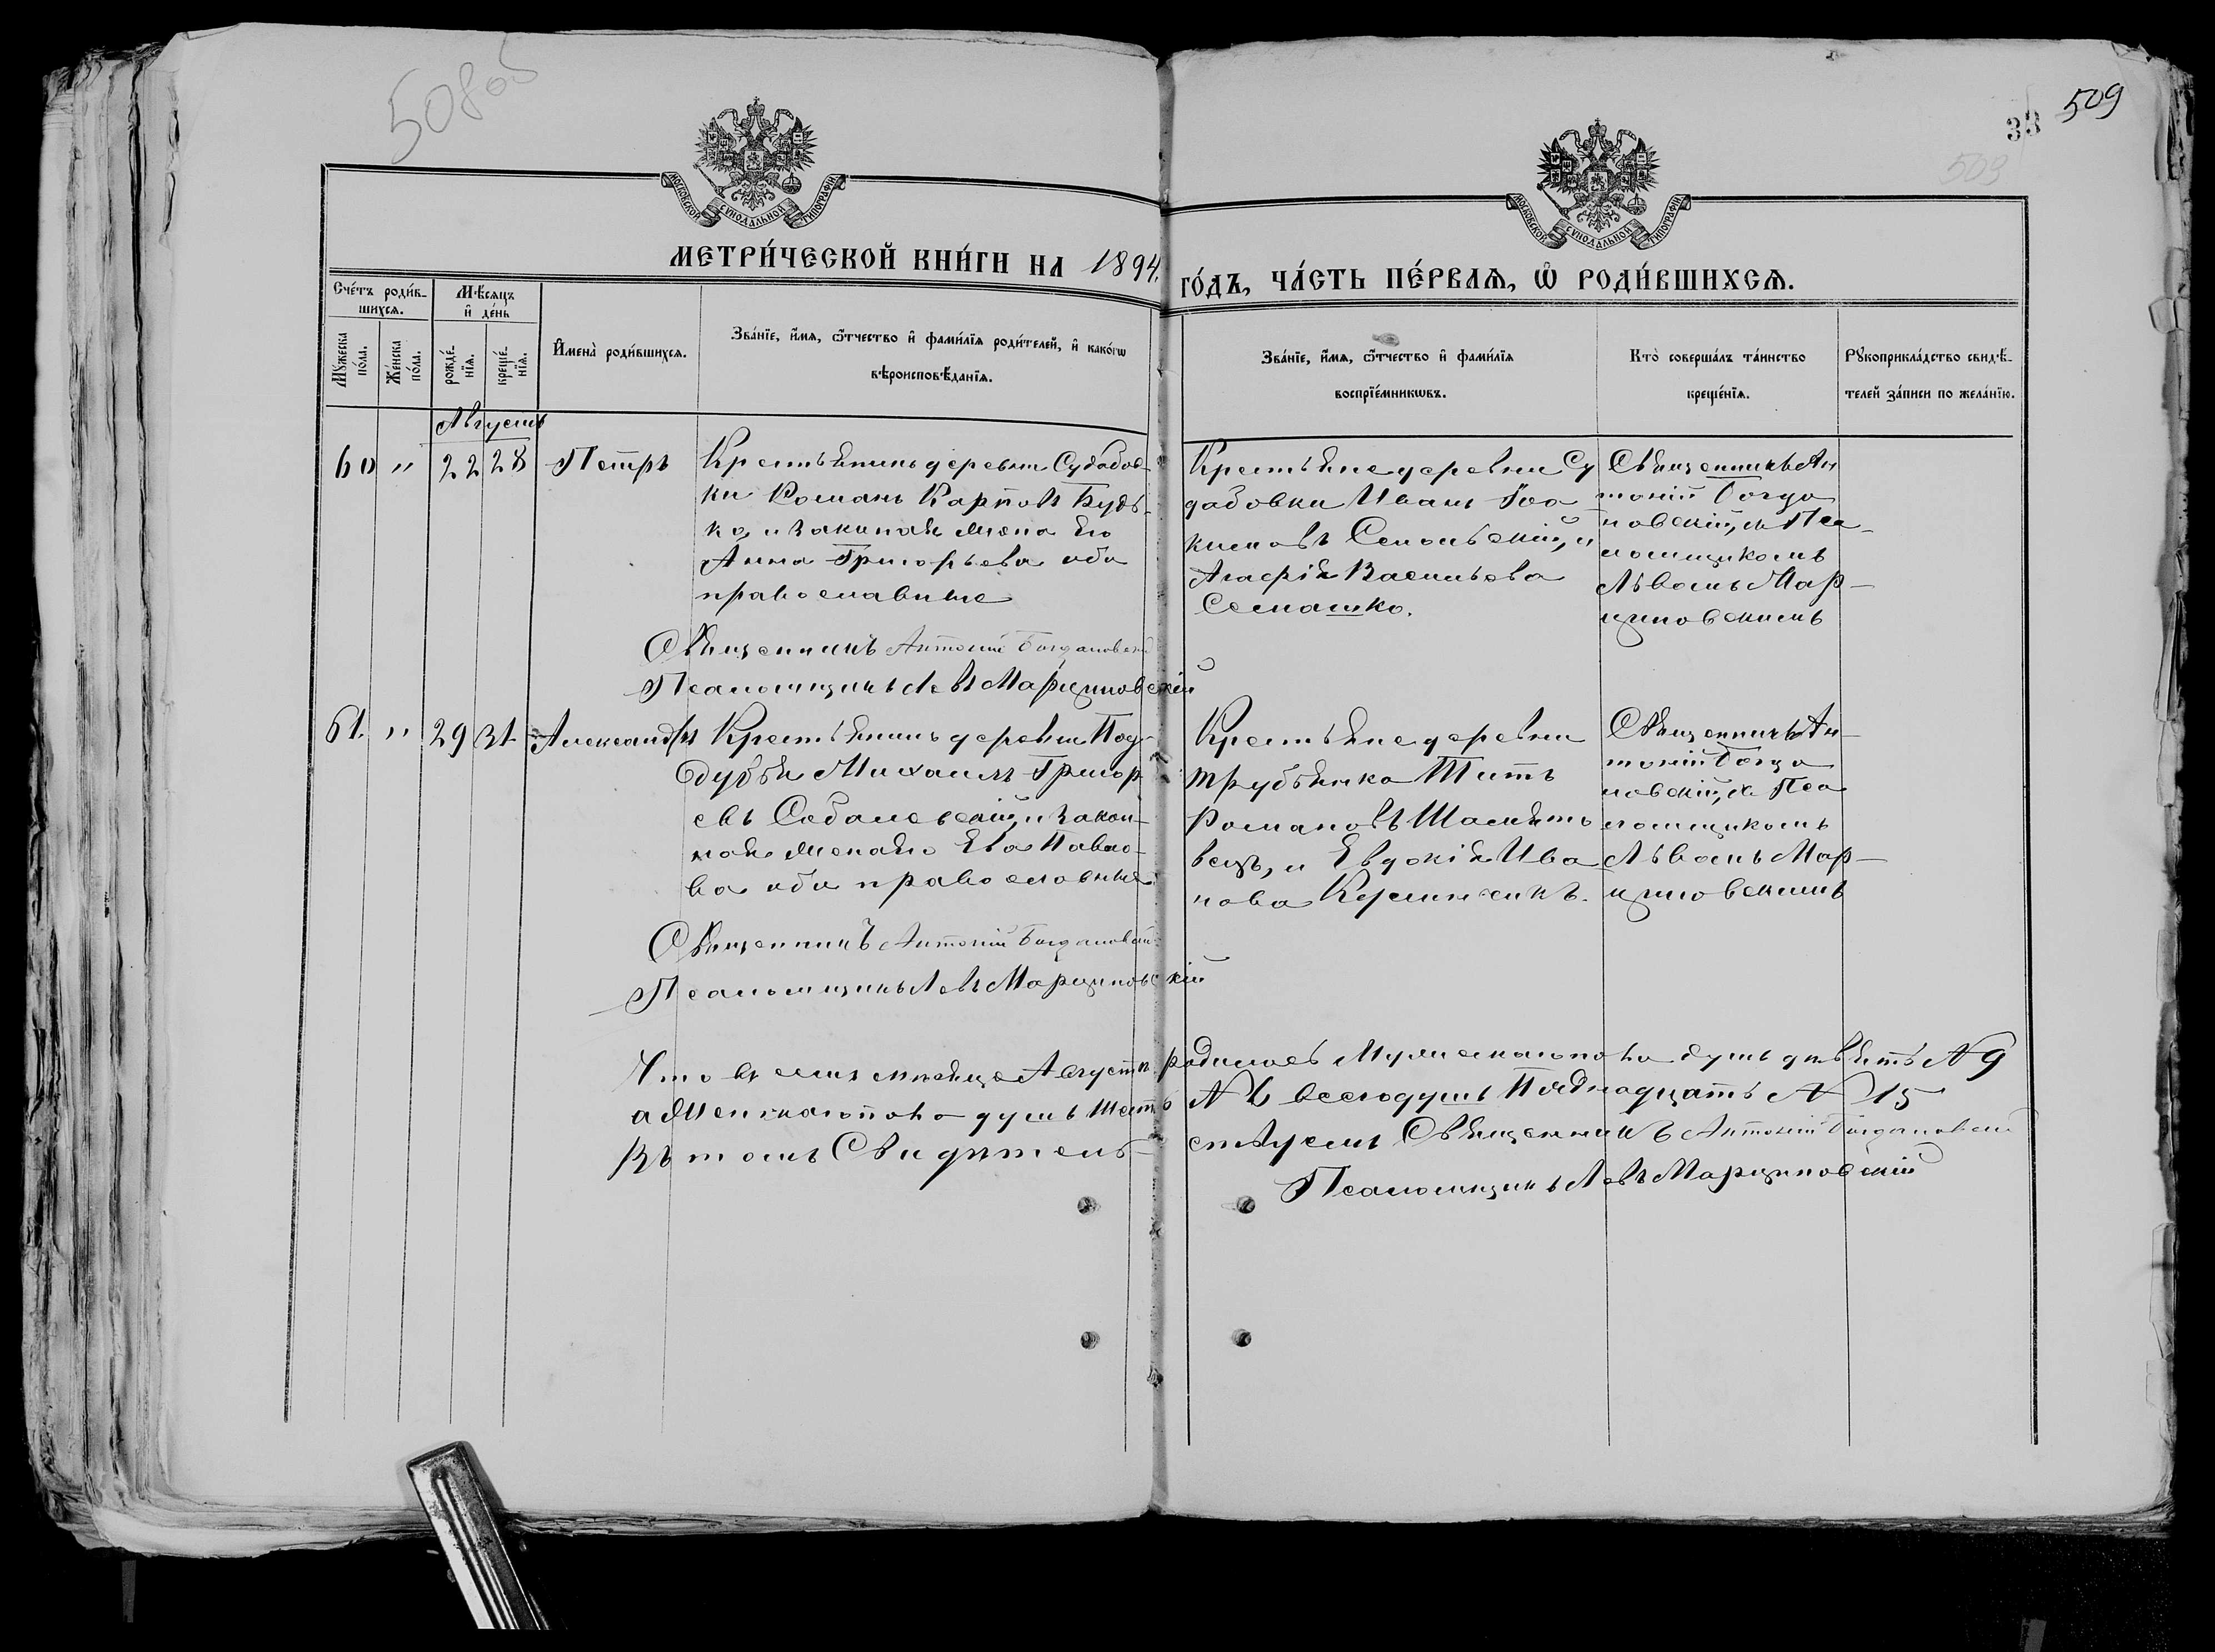 508об
33 509
509
МОСКОВСКОЙ СУНОДАЛЬНОЙ ТИПОГРАФИИ
МОСКОВСКОЙ СУНОДАЛЬНОЙ ТИПОГРАФИИ
МЕТРИ́ЧЕСКОЙ КНИ́ГИ НА 1894.
ГО́ДЪ, ЧА́СТЬ ПЕ́РВАЯ, Ѡ РОДИ́ВШИХСЯ.
Сче́тъ роди́в-
шихся.
Мѣ́сяцъ
и де́нь
Мꙋ́жеска по́ла.
Же́нска по́ла.
рожде́-
нїя.
креще́-
нїя.
Имена̀ роди́вшихся.
Зва́нїе, и́мя, ѻ́тчество и фами́лїя роди́телей, и како́гѡ
вѣроисповѣ́данїя.
Зва́нїе, и́мя, ѻ́тчество и фами́лїя
воспрїе́мникѡвъ.
Кто̀ соверша́лъ та́инство
креще́нїя.
Рꙋкоприкла́дство свидѣ́-
телей за́писи по жела́нїю.
Августъ
60 " 22 28 Петръ
Крестьянинъ деревни Судобов-
ки Романъ Карповъ Будь-
ко, и законная жена его
Анна Григорьева оба
православные
Крестьяне деревни Су
добовки Иванъ Іоа
кимовъ и
Агафія Васильева
Семашко.
Священникъ Ан
тоній Богда
новскій, съ Пса-
ломщикомъ
Львомъ Мар-
циновскимъ
Священникъ Антоній Богдановскій
Псаломщикъ Левъ Марциновскій
61. " 29 31 Александръ
Крестьянинъ деревни Под-
дубья Михаилъ Григорь
евъ Соболевскій, и закон-
ная жена его Ева Павло-
ва оба православные
Крестьяне деревни
Трубянка Титъ
Романовъ
вецъ, и Евдокія Ива
нова
Священникъ Ан-
тоній Богда
новскій, съ Пса
ломщикомъ
Львомъ Мар-
циновскимъ
Священникъ Антоній Богдановскій
Псаломщикъ Левъ Марциновскій
Что въ семъ мѣсяцѣ Августѣ родилось Мужескаго пола душъ девять N 9
а Женскаго пола душъ шесть N 6 всего душъ Пятнадцать N 15
Въ томъ Свидѣтель-ствуемъ Священникъ Антоній Богдановскій
Псаломщикъ Левъ Марциновскій